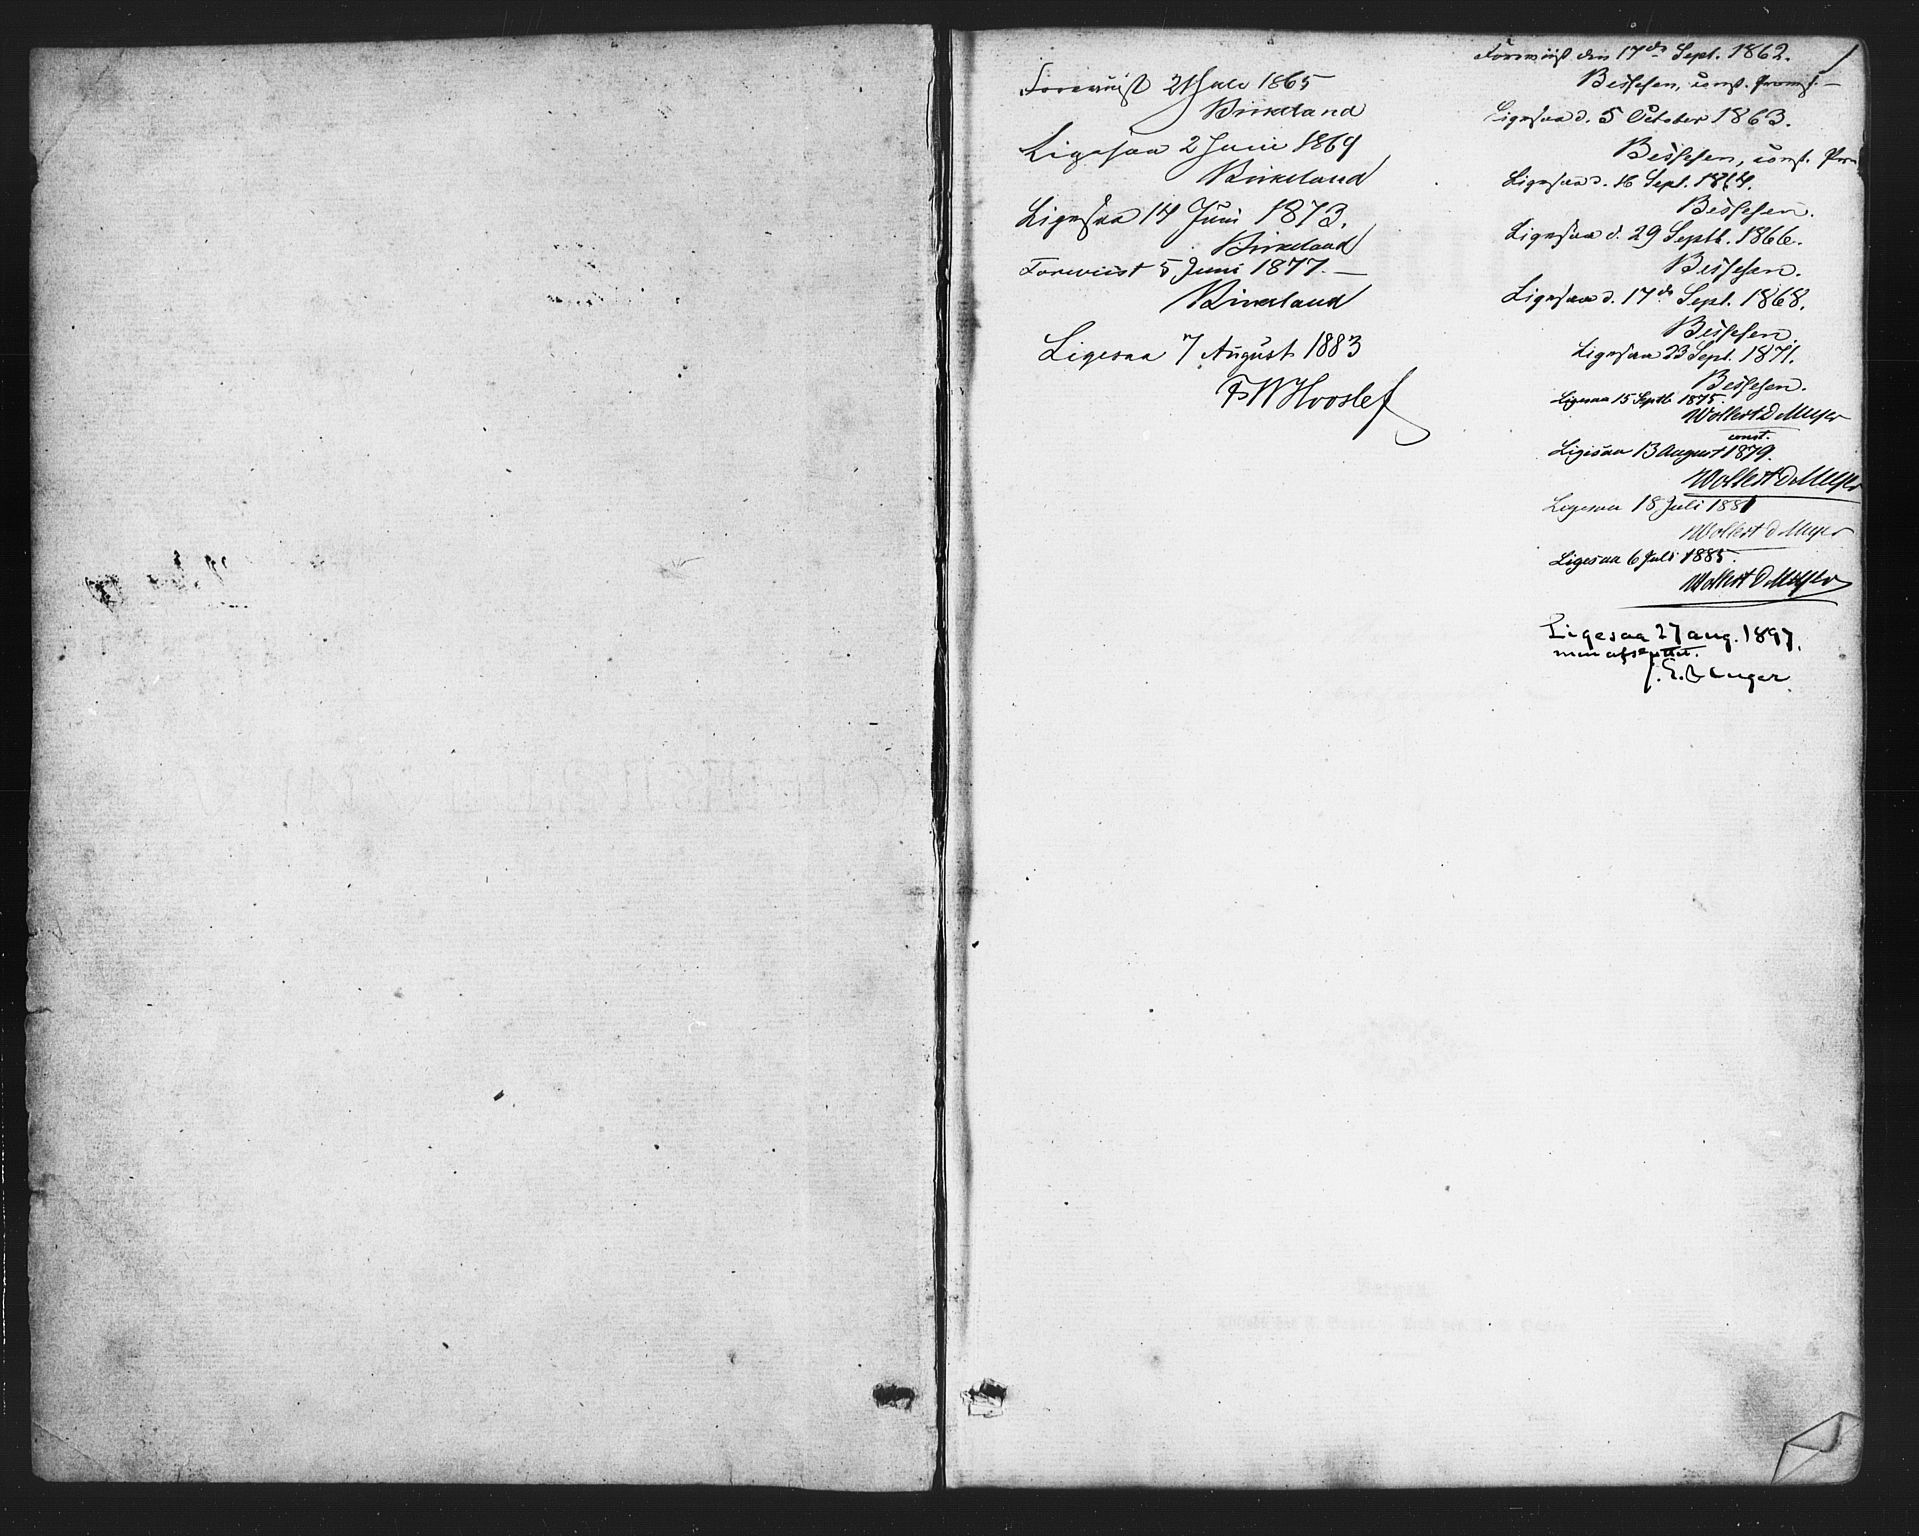 Foreviist 21 Juli 1865
Birkeland
Ligesaa 2 Juni 1869
Birkeland
Ligesaa 14 Juni 1873.
Birkeland
Foreviist 5 Juni 1877. —
Birkeland
Ligesaa 7 August 1883
1
Foreviist den 17de Sept. 1862.
Bessesen, const.
Ligesaa d. 5 October 1863.
Bessesen, const.
Ligesaa d. 16 Sept. 1864.
Bessesen.
Ligesaa d. 29 Septb. 1866.
Bessesen.
Ligesaa d. 17de Sept. 1868.
Bessesen.
Ligesaa 23 Sept. 1871.
Bessesen.
Ligesaa 15 Septb 1875.
Wollert D Meyer
const.
Ligesaa 13 August 1879.
Wollert D Meyer
Ligesaa 18 Juli 1881
Wollert D Meyer
Ligesaa 6 Juli 1885.
Wollert D Meyer
Ligesaa 27 aug. 1897.
men afsluttet.
Unger